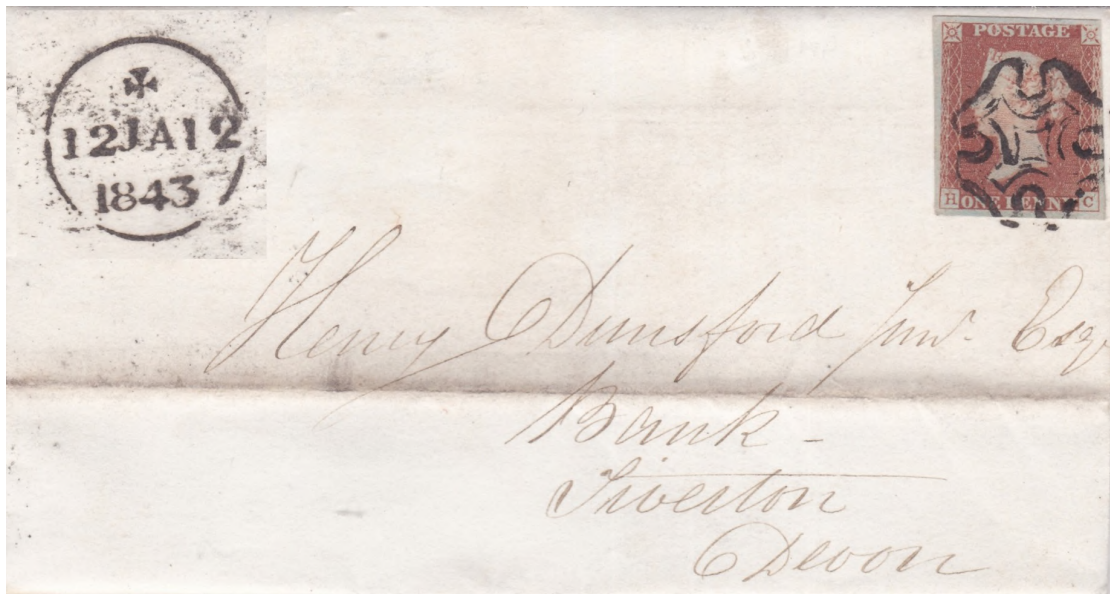 12JA12
1843
POSTAGE
H ONE PENNY C
Henry Dunsford Junr. Esqr
Bank -
Tiverton
Devon